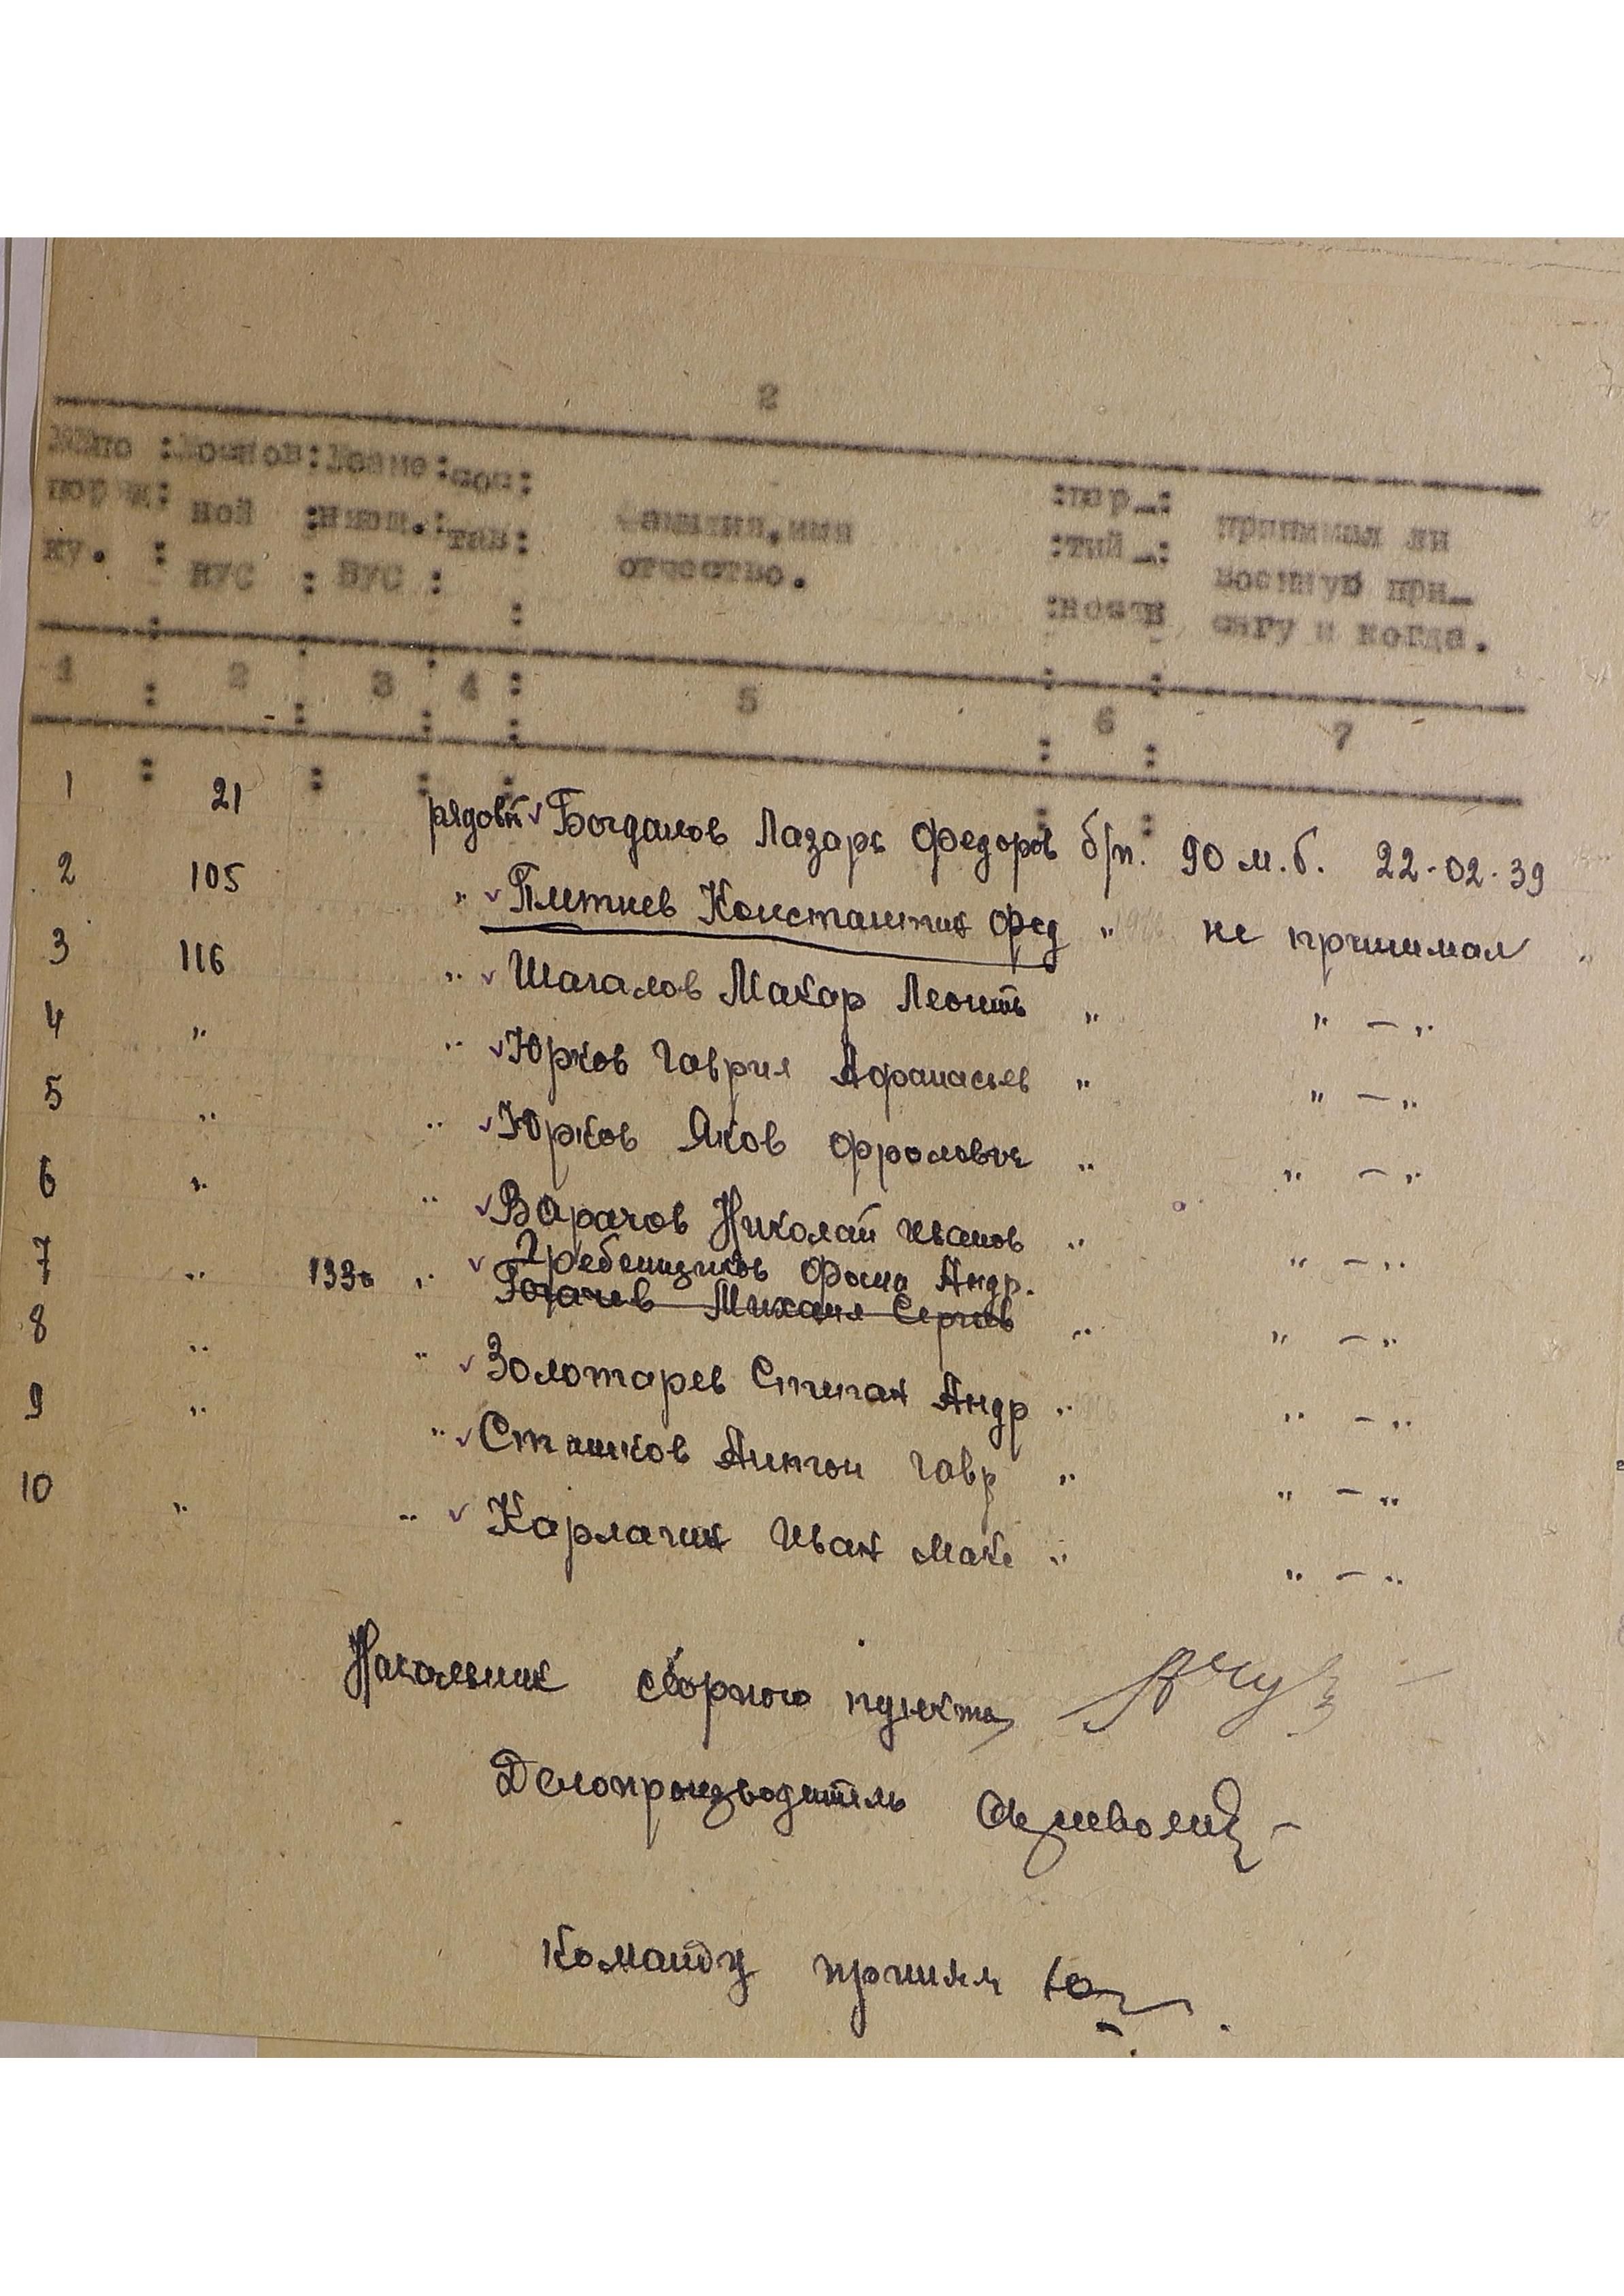 2
№№по : Основ : Воен : сос :
поряд : ной : : тав : фамилия, имя : пар_ : принимал ли
ку. : ВУС : ВУС : отчество. : тий_ : военную при_
: ность сягу и когда.
1 : 2 : 3 : 4 : 5 : 6 : 7
1 21 рядов Богданов Лазарь Федоров б/п. 90 м.б. 22-02-39
2 105 " Плетнев Константин Фед " не принимал
3 116 " Шагалов Макар Леонть " " — "
4 " " Юрков Гаврил Афанасьев " " — "
5 " " Юрков Яков Фролович " " — "
6 " " Варачов Николай Иванов " " — "
7 " 133а " Гребенщиков Фома Андр.
Гогачев Михаил Сергеев " " — "
8 " " Золотарев Степан Андр " " — "
9 " " Сташков Антон Гавр " " — "
10 " " Карлагин Иван Макс " " — "
Начальник сборного пункта
Делопроизводитель
Команду принял